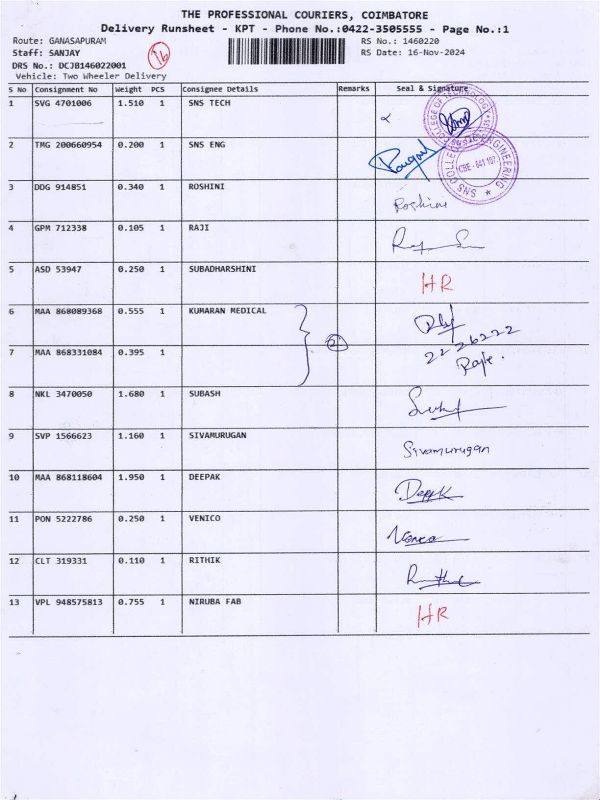 THE PROFESSIONAL COURIERS, COIMBATORE
Delivery Runsheet - KPT - Phone No.:0422-3505555 - Page No.:1
Route: GANASAPURAM
Staff: SANJAY
DRS No.: DCJB146022001
Vehicle: Two Wheeler Delivery
16
RS No.: 1460220
RS Date: 16-Nov-2024
S No Consignment No Weight PCS Consignee Details Remarks Seal & Signature
1 SVG 4701006 1.510 1 SNS TECH
2 TMG 200660954 0.200 1 SNS ENG
SNS COLLEGE OF ENGINEERING
CBE - 641 107
3 DDG 914851 0.340 1 ROSHINI Roshini
4 GPM 712338 0.105 1 RAJI
5 ASD 53947 0.250 1 SUBADHARSHINI HR
6 MAA 868089368 0.555 1 KUMARAN MEDICAL
2
7 MAA 868331084 0.395 1
8 NKL 3470050 1.680 1 SUBASH
9 SVP 1566623 1.160 1 SIVAMURUGAN Sivamurugan
10 MAA 868118604 1.950 1 DEEPAK Deepk
11 PON 5222786 0.250 1 VENICO
12 CLT 319331 0.110 1 RITHIK
13 VPL 948575813 0.755 1 NIRUBA FAB HR